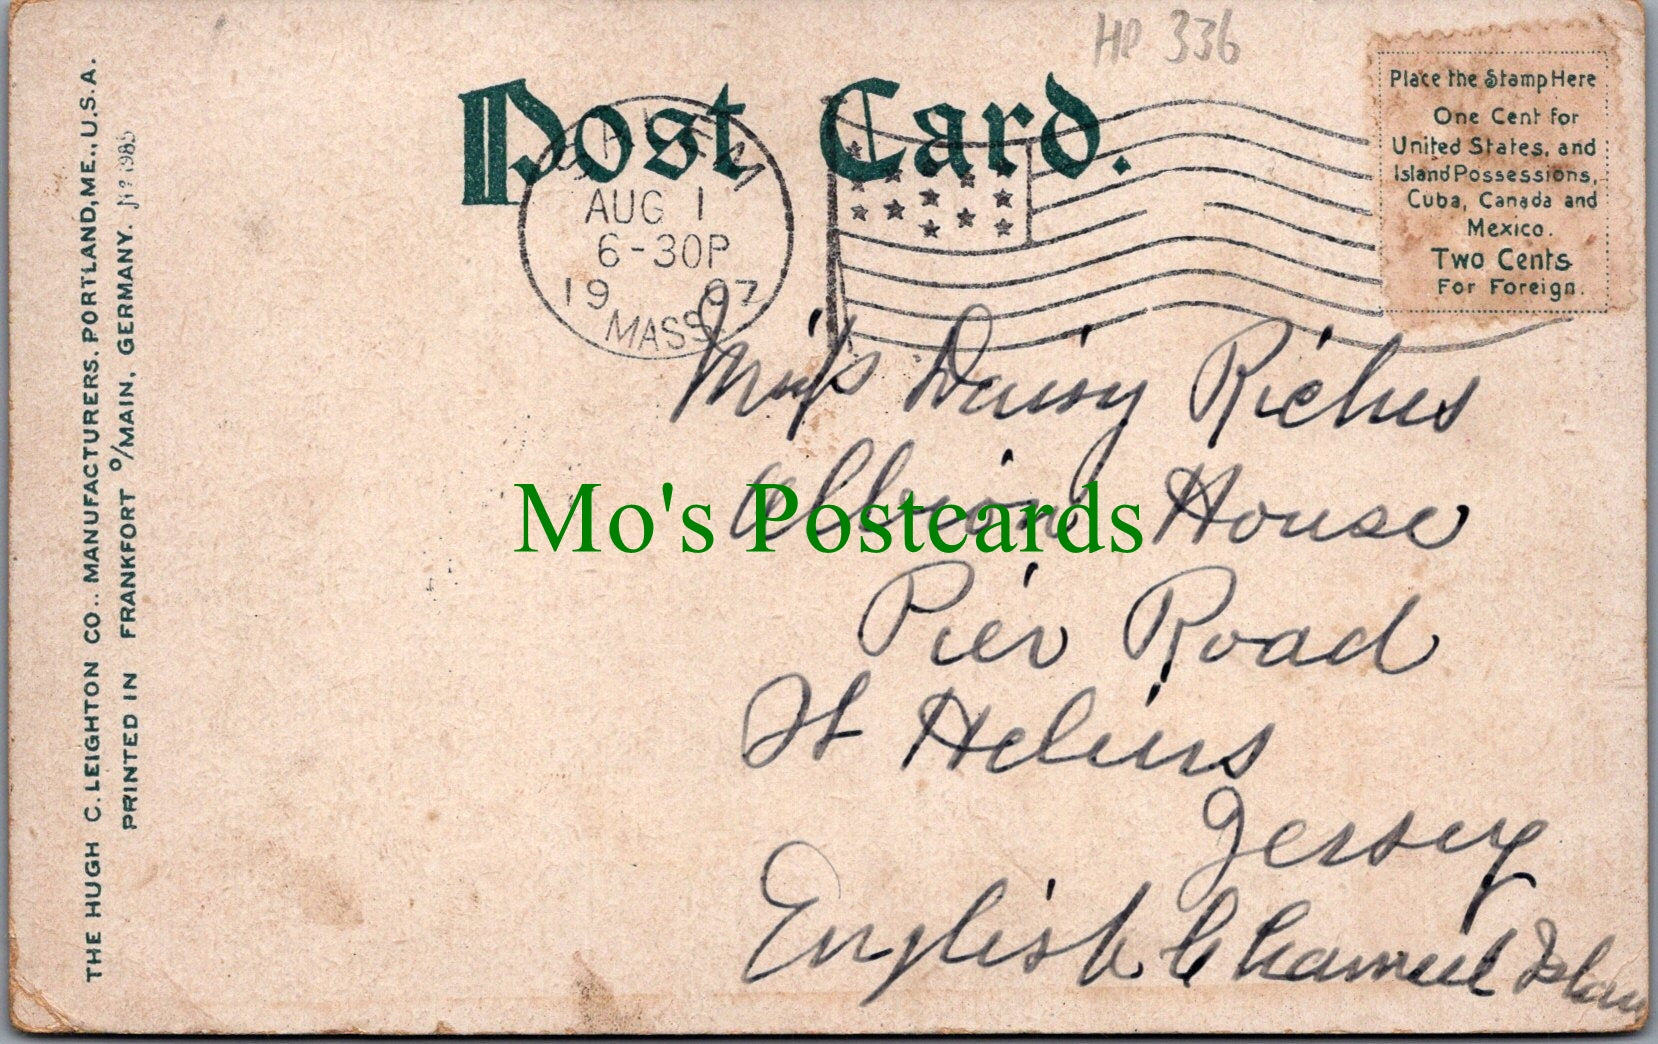 HP 336
Post Card.
Place the Stamp Here
One Cent for
United States, and
Island Possessions,
Cuba, Canada and
Mexico.
Two Cents
For Foreign.
SALEM
AUG 1
6-30P
1907
MASS.
Miss Daisy Riches
Albion House
Pier Road
St Heliers
Jersey
English Channel Islan
Mo's Postcards
THE HUGH C. LEIGHTON CO., MANUFACTURERS, PORTLAND, ME., U.S.A.
PRINTED IN FRANKFORT O/MAIN, GERMANY.